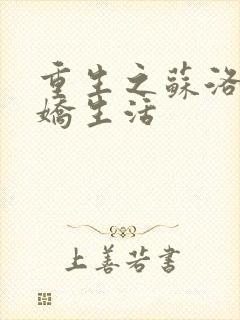 重生之蘇洛
嬌生活
上善若書